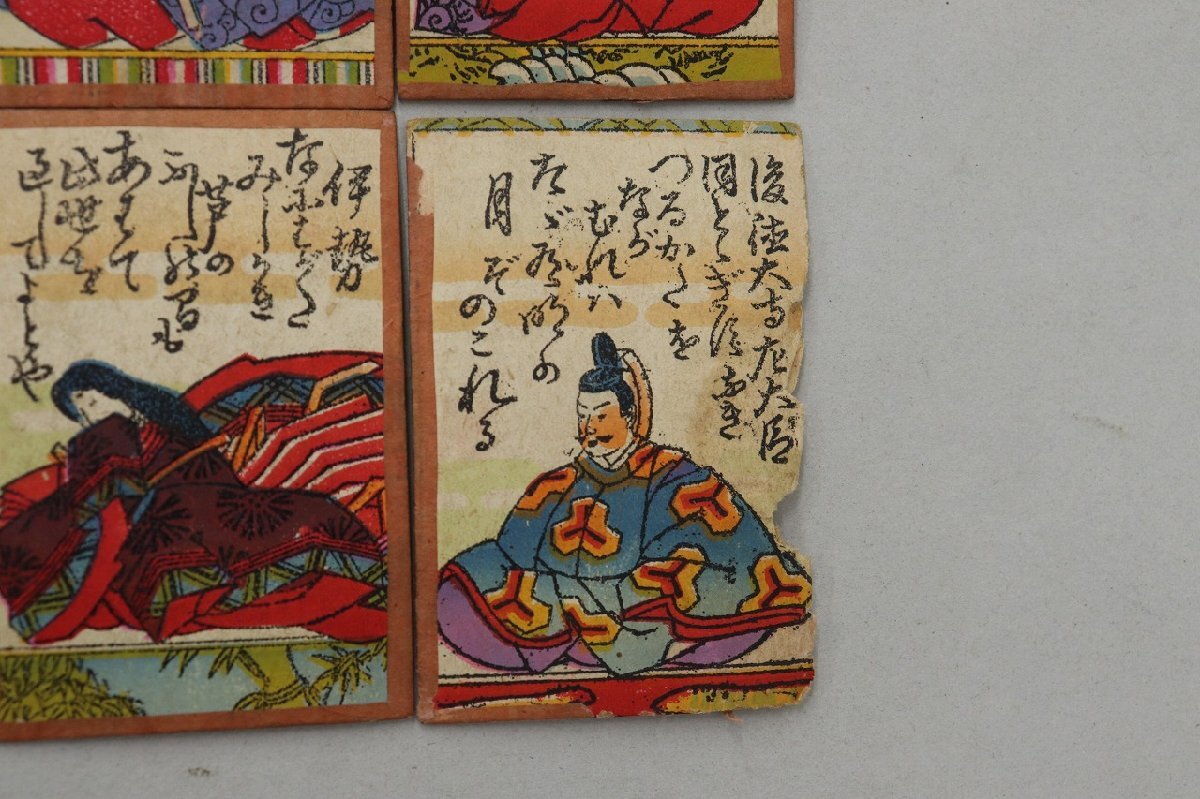 後徳大寺左大臣
ほとゝぎすなき
つるかたを
なが
むれバ
たゞ有明の
月ぞのこれる
伊勢
なにはがた
みじかき
芦の
ふしの間も
あはて
此世を
過してよとや